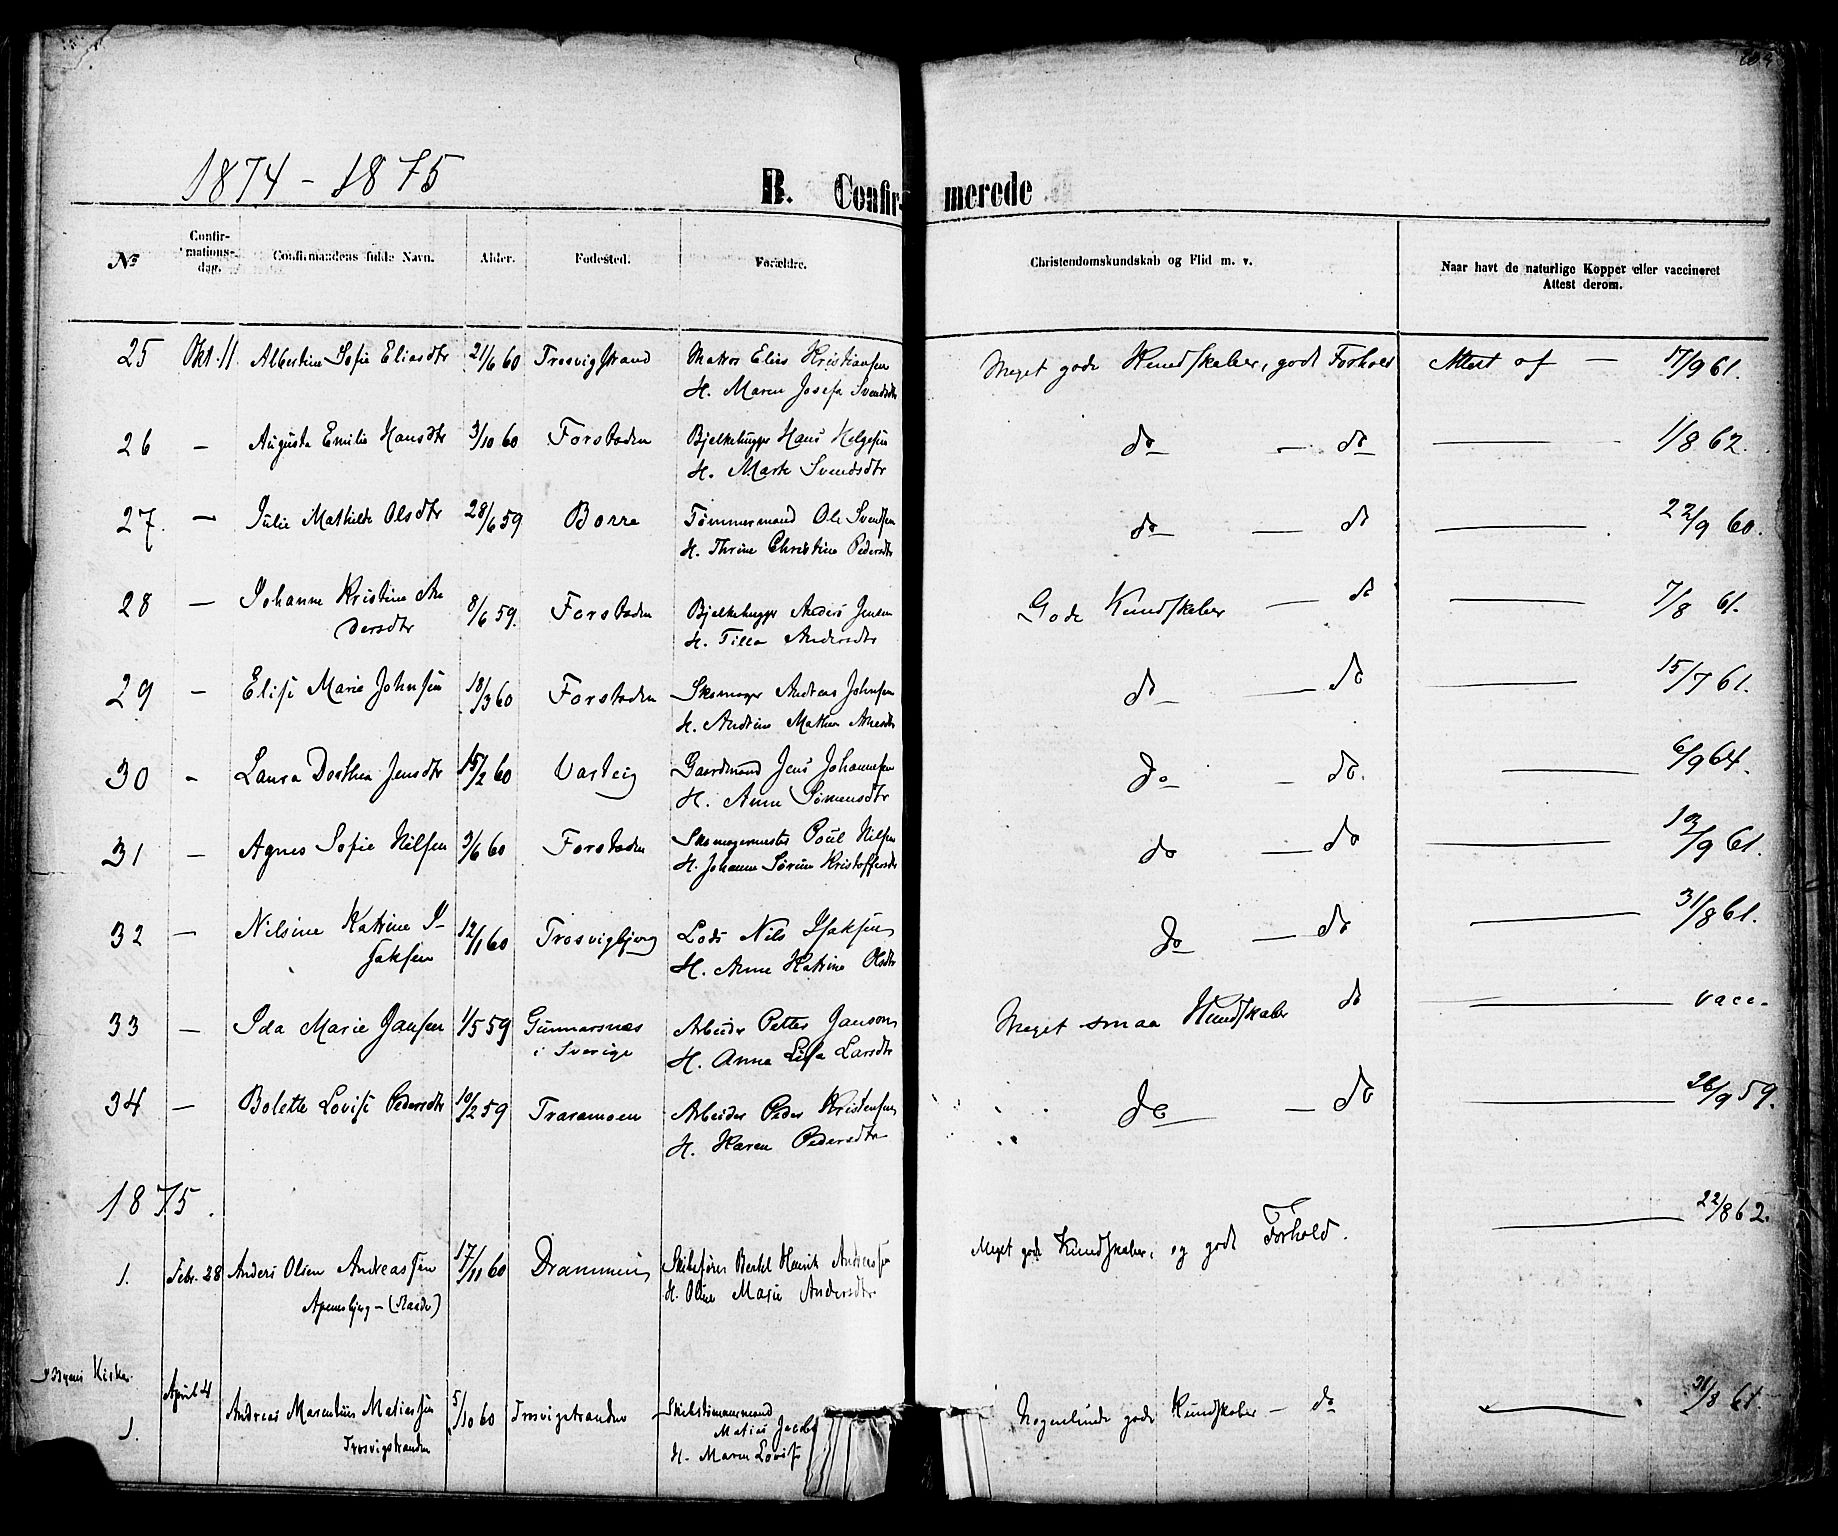 1874 - 1875
B. Confirmerede
No
Confirmationsdag.
Confirmandens fulde Navn.
Alder.
Fødested.
Forældre.
Christendomskundskab og Flid m. v.
Naar havt de naturlige Kopper eller vaccineret
Attest derom.
25 Okt. 11 Albertine Sofie Eliasdtr 21/6 60 Trosvigstrand Matros Elias Kristiansen Meget gode Kundskaber, godt Forhold Attest af — 17/9 61.
H. Maren Josefa Svendsdtr
26 — Augusta Emilie Hansdtr 3/10 60 Forstaden Bjelkehugger Hans Helgesen do — do — 1/8 62.
H. Marte Svendsdtr
27. — Julie Mathilde Olsdtr 28/6 59 Borre Tømmermand Ole Svendsen do — do — 22/9 60.
H. Thrine Christine Pedersdtr
28 — Johanne Kristine An 8/6 59. Forstaden Bjelkehugger Anders Jensen Gode Kundskaber — do — 7/8 61.
dersdtr H. Tilla Andersdtr
29 — Elise Marie Johnsen 18/3 60 Forstaden Skomager Andreas Johnsen do — do — 15/7 61.
H. Andrine Mathea
30 - Laura Dorthea Jensdtr 15/2 60 Varteig Gaardmand Jens Johannesen do — do. — 6/9 64.
H. Anne Simensdtr
31 — Agnes Sofie Nilsen 3/6 60 Forstaden Skomagermester Poul Nilsen do — do — 13/9 61.
H. Johanne Sørine Kristoffersdtr
32 — Nilsine Katrine I- 12/1 60 Trosvigbjerg Lods Nils Isaksen do — do — 31/8 61.
saksen H. Anne Katrine Olsdtr
33 — Ida Marie Jansen 1/5 59 Gunnarsnæs Arbeider Petter Janson Meget smaa Kundskaber do — vacc.
i Sverige H. Anna Lisa Larsdtr
34 — Bolette Lovise Pedersdtr 10/2 59 Traramoen Arbeider Peder Kristensen do — do — 26/9 59.
H. Karen Pedersdtr
1875.
1. Febr. 28 Anders Olsen Andreassen 17/11 60 Drammen Skibsfører Bertel Henrik Andreassen Meget gode Kundskaber, og godt Forhold. — 22/8 62.
Apenesbjerg - (Raade) H. Oline Marie Andersdtr
I Byens Kirke.
1. April 4 Andreas Marentius Matiassen 5/10 60 Trosvigstranden Skibstømmermand Nogenlunde gode Kundskaber — do — 31/8 61.
Trosvigstranden Matias Jacobs
H. Maren Lovise